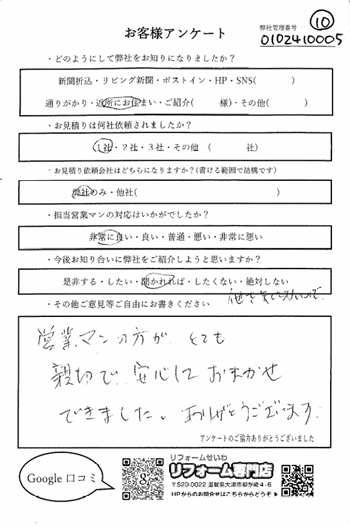 お客様アンケート
弊社管理番号 ⑩
0102410005
・どのようにして弊社をお知りになりましたか?
新聞折込・リビング新聞・ポストイン・HP・SNS( )
通りがかり・近所にお住まい・ご紹介( 様)・その他( )
・お見積りは何社依頼されましたか?
1社・2社・3社・その他 ( 社)
・お見積り依頼会社はどちらになりますか?(書ける範囲で結構です)
弊社のみ・他社( )
・担当営業マンの対応はいかがでしたか?
非常に良い・良い・普通・悪い・非常に悪い
・今後お知り合いに弊社をご紹介しようと思いますか?
是非する・したい・聞かれれば・したくない・絶対しない
・その他ご意見等ご自由にお書きください
営業マンの方が とても
親切で 安心して おまかせ
できました。ありがとうございます
アンケートのご協力ありがとうございました
Google 口コミ
リフォームせいわ
リフォーム専門店
〒520-0022 滋賀県大津市柳が崎4-6
HPからのお問合せはこちらからどうぞ